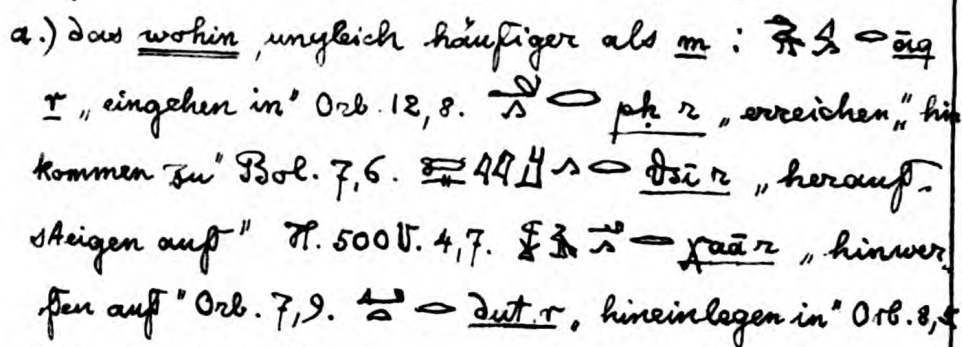 a.) das wohin, ungleich häufiger als m : āq
r „eingehen in" Orb. 12,8. pḥ r „erreichen," hin
kommen zu" Bol. 7,6. r „herauf-
steigen auf" H. 500 V. 4,7. χaā r „hinwer-
fen auf" Orb. 7,9. dut r „hineinlegen in" Orb. 8,